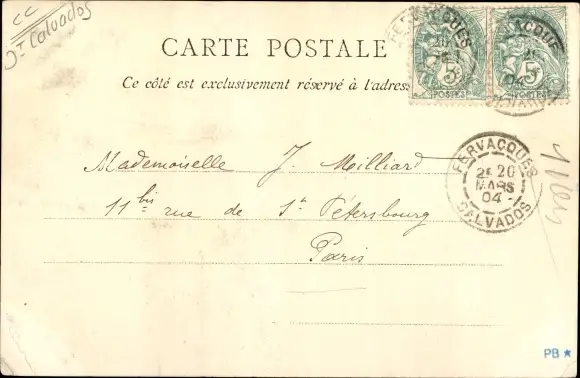 CC
Dt Calvados
CARTE POSTALE
Ce côté est exclusivement réservé à l'adresse
FERVACQUES
5
POSTES
5
POSTES
Mademoiselle J. Milliard
11 bis rue de St Pétersbourg
Paris
FERVACQUES
2E 20
MARS
04
CALVADOS
PB